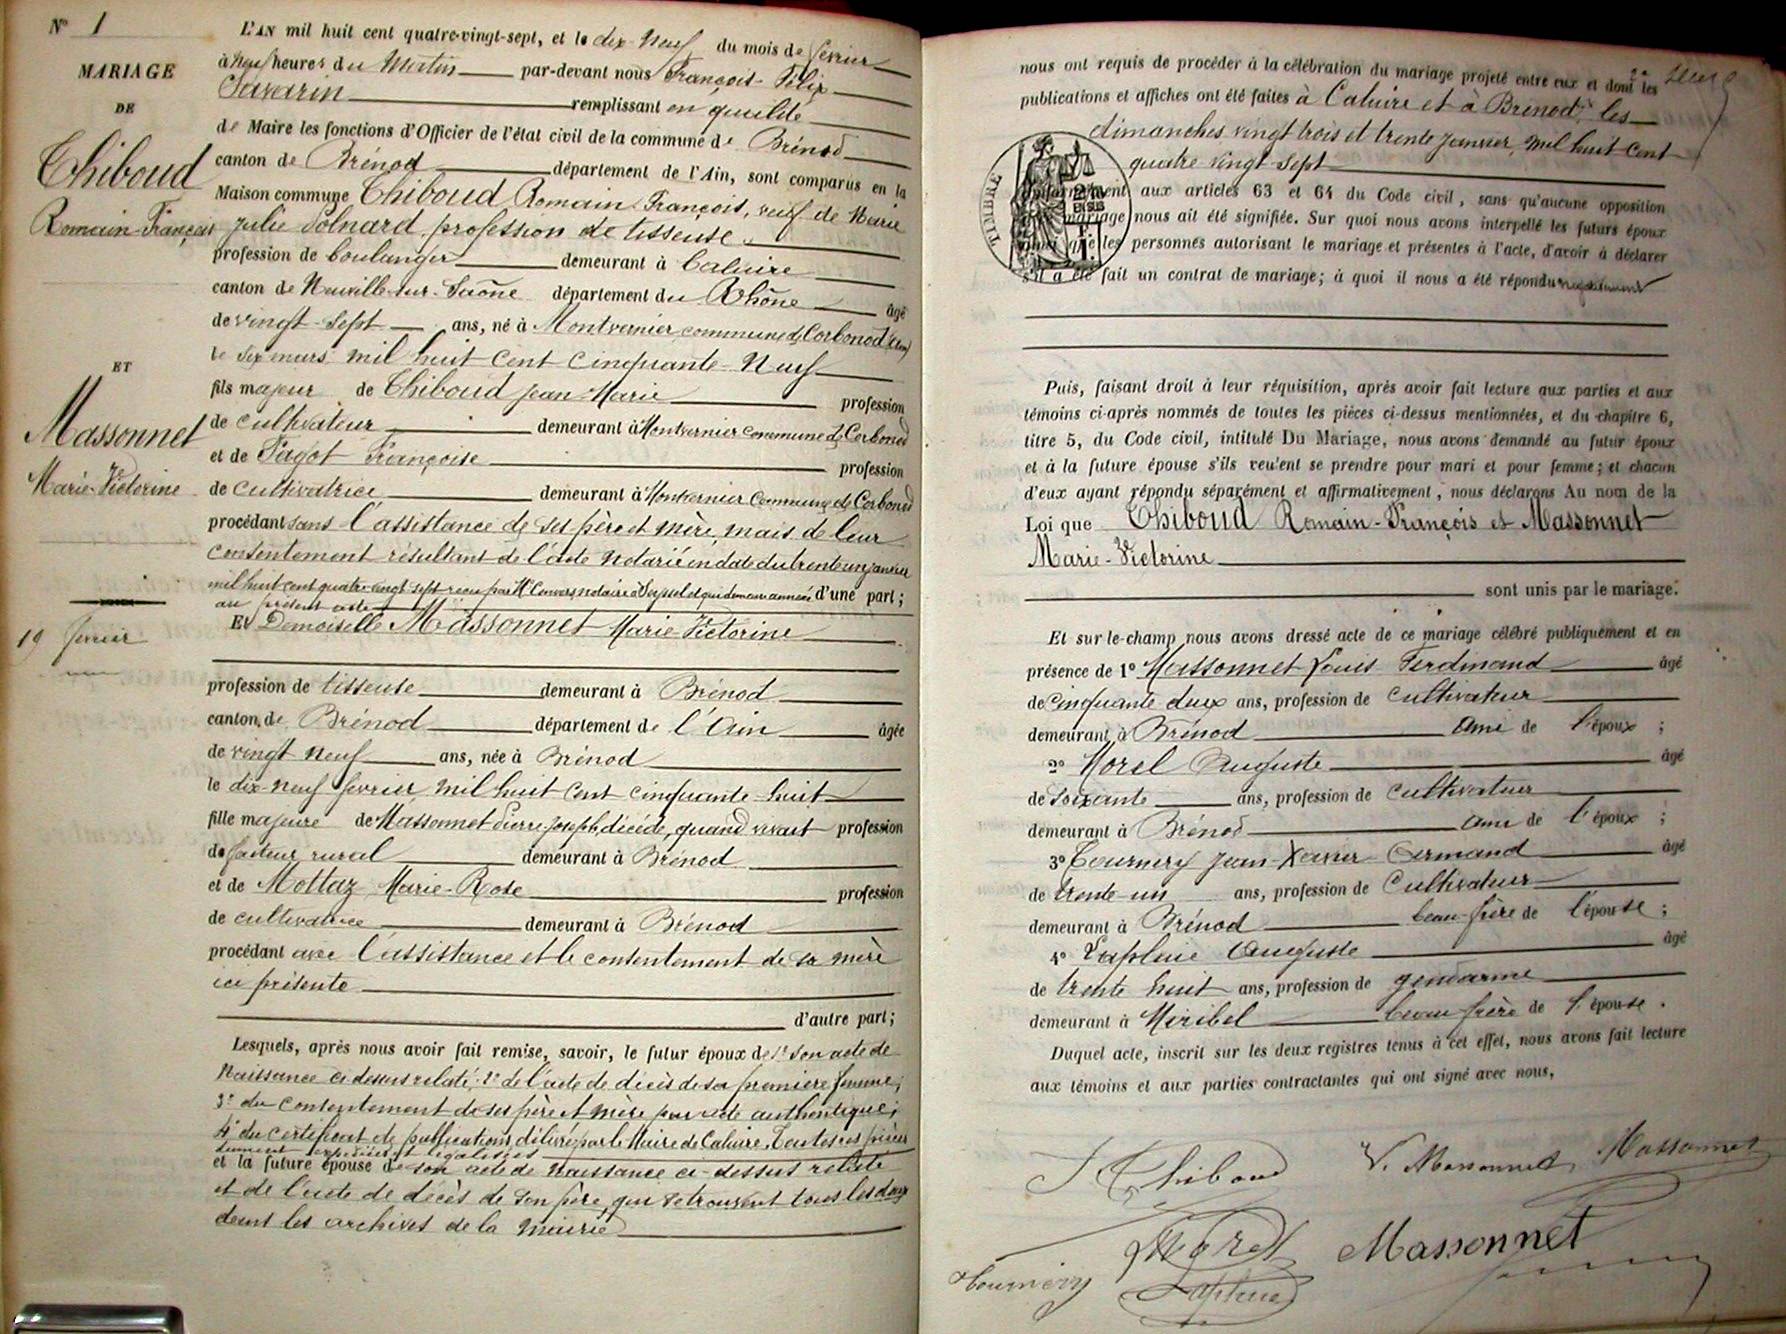 N° 1
MARIAGE
DE
Thiboud
Romain-François
ET
Massonnet
Marie-Victorine
19 février
L'AN mil huit cent quatre-vingt-sept, et le dix-neuf du mois de février
à neuf heures du Matin par-devant nous François-Félix
Savarin remplissant en qualité
de Maire les fonctions d'Officier de l'état civil de la commune de Brénod
canton de Brénod département de l'Ain, sont comparus en la
Maison commune Thiboud Romain François, veuf de Marie
Julie Polnard, profession de tisseuse
profession de boulanger demeurant à Caluire
canton de Neuville-sur-Saône département du Rhône âgé
de vingt-sept ans, né à Montvernier commune de Corbonod (Ain)
le six mars mil huit cent cinquante-neuf
fils majeur de Thiboud Jean-Marie profession
de cultivateur demeurant à Montvernier commune de Corbonod
et de Fagot Françoise profession
de cultivatrice demeurant à Montvernier commune de Corbonod
procédant sans l'assistance de ses père et mère, mais de leur
consentement résultant de l'acte notarié en date du trente un janvier
mil huit cent quatre-vingt-sept reçu par Me Convers notaire à Seyssel et qui demeure annexé d'une part;
au présent acte
Et Demoiselle Massonnet Marie Victorine
profession de tisseuse demeurant à Brénod
canton de Brénod département de l'Ain âgée
de vingt neuf ans, née à Brénod
le dix-neuf février mil huit cent cinquante-huit
fille majeure de Massonnet Pierre Joseph, décédé, quand vivait profession
de facteur rural demeurant à Brénod
et de Mottaz Marie-Rose profession
de cultivatrice demeurant à Brénod
procédant avec l'assistance et le consentement de sa mère
ici présente
d'autre part;
Lesquels, après nous avoir fait remise, savoir, le futur époux de 1° son acte de
naissance ci dessus relaté: 2° de l'acte de décès de sa première femme;
3° du consentement de ses père et mère par acte authentique;
4° du certificat de publications délivré par le Maire de Caluire. Toutes ces pièces
dûment expédiées et légalisées
et la future épouse de son acte de naissance ci-dessus relaté
et de l'acte de décès de son père, qui se trouvent tous les deux
dans les archives de la Mairie
nous ont requis de procéder à la célébration du mariage projeté entre eux et dont les
publications et affiches ont été faites à Caluire et à Brénod, les
dimanches vingt trois et trente janvier, mil huit cent
quatre vingt-sept
TIMBRE
aux articles 63 et 64 du Code civil, sans qu'aucune opposition
mariage nous ait été signifiée. Sur quoi nous avons interpellé les futurs époux
que les personnes autorisant le mariage et présentes à l'acte, d'avoir à déclarer
s'il a été fait un contrat de mariage; à quoi il nous a été répondu négativement
Puis, faisant droit à leur réquisition, après avoir fait lecture aux parties et aux
témoins ci-après nommés de toutes les pièces ci-dessus mentionnées, et du chapitre 6,
titre 5, du Code civil, intitulé Du Mariage, nous avons demandé au futur époux
et à la future épouse s'ils veulent se prendre pour mari et pour femme; et chacun
d'eux ayant répondu séparément et affirmativement, nous déclarons Au nom de la
Loi que Thiboud Romain-François et Massonnet
Marie-Victorine
sont unis par le mariage.
Et sur-le-champ nous avons dressé acte de ce mariage célébré publiquement et en
présence de 1° Massonnet Louis Ferdinand âgé
de cinquante deux ans, profession de cultivateur
demeurant à Brénod ami de l'époux ;
2° Morel Auguste âgé
de soixante ans, profession de cultivateur
demeurant à Brénod ami de l'époux ;
3° Tournery Jean-Xavier Armand âgé
de trente-un ans, profession de Cultivateur
demeurant à Brénod beau-frère de l'épouse ;
4° Laplue Auguste âgé
de trente huit ans, profession de gendarme
demeurant à Miribel beau frère de l'épouse.
Duquel acte, inscrit sur les deux registres tenus à cet effet, nous avons fait lecture
aux témoins et aux parties contractantes qui ont signé avec nous,
Thiboud V. Massonnet Massonnet
Morel Massonnet
Tournery Laplue